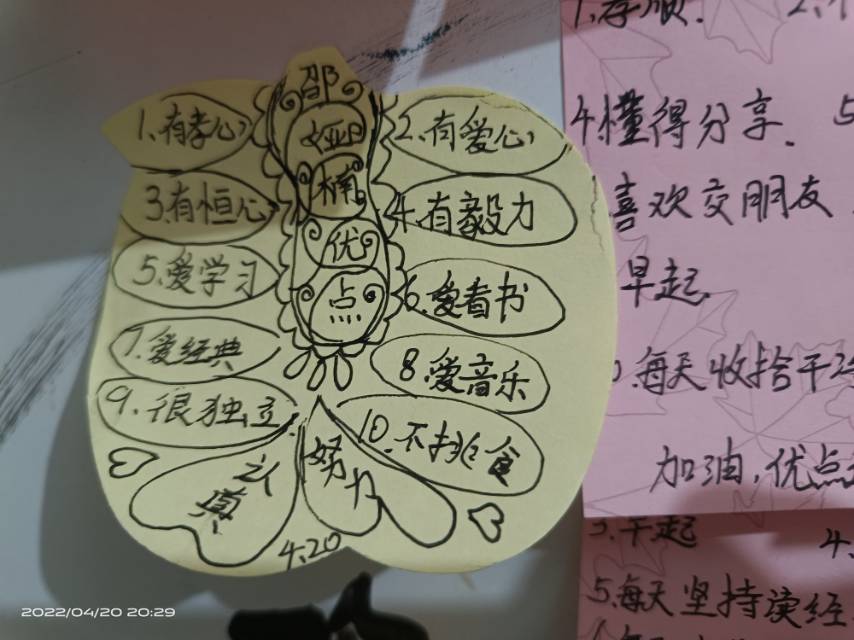 邵
娅
楠
优
点
1、有孝心
2、有爱心
3、有恒心
4、有毅力
5、爱学习
6、爱看书
7、爱经典
8、爱音乐
9、很独立
10、不挑食
认真
努力
4.20
1、孝顺. 2、
4懂得分享. 5
喜欢交朋友
早起.
.每天收拾干
加油,优点
3、早起 4.
5.每天坚持读经
2022/04/20 20:29